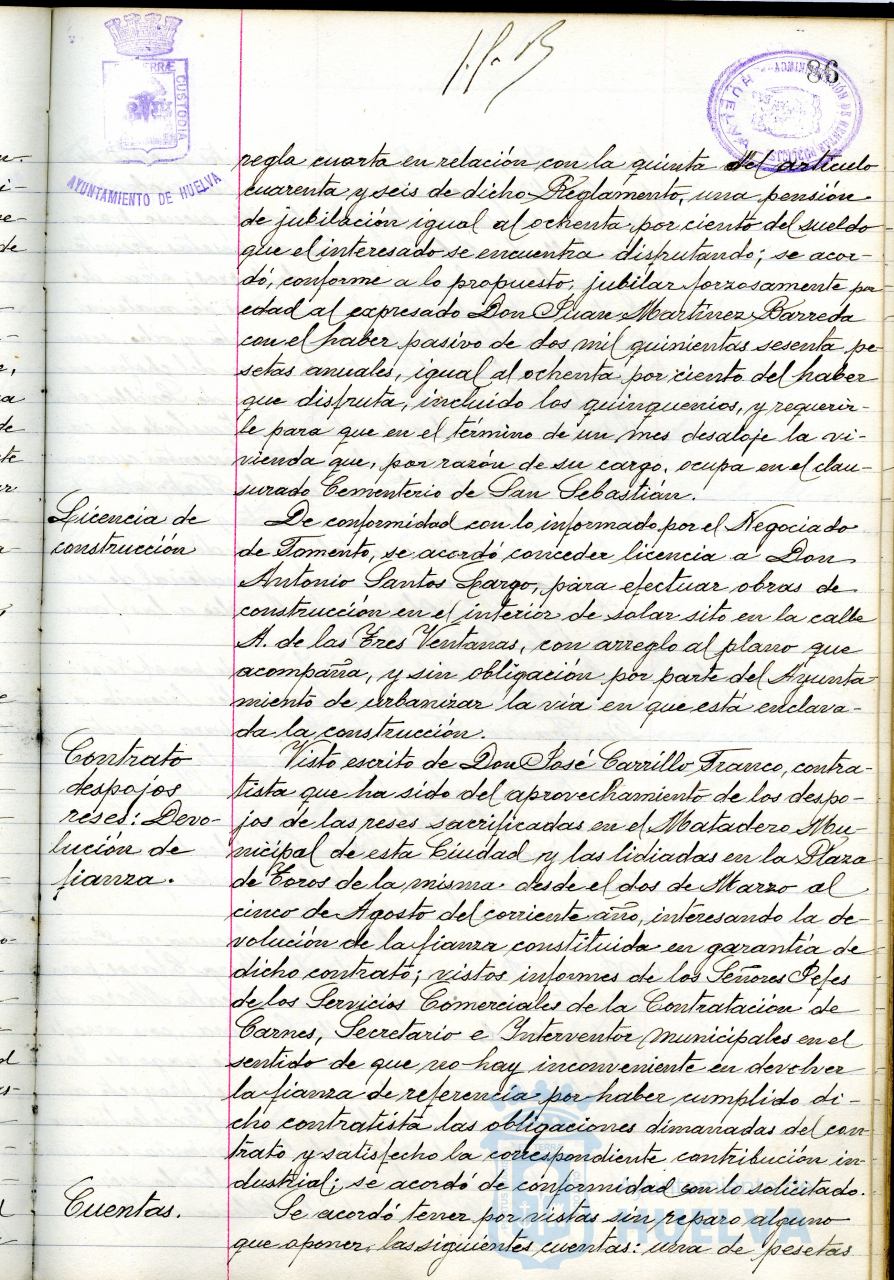 86
CUSTODIA
AYUNTAMIENTO DE HUELVA
HUELVA
regla cuarta en relación con la quinta del artículo
cuarenta y seis de dicho Reglamento, una pensión
de jubilación igual al ochenta por ciento del sueldo
que el interesado se encuentra disfrutando; se acor-
dó, conforme a lo propuesto, jubilar forzosamente por
edad al expresado Don Juan Martínez Barreda
con el haber pasivo de dos mil quinientas sesenta pe-
setas anuales, igual al ochenta por ciento del haber
que disfruta, incluido los quinquenios, y requerir-
le para que en el término de un mes desaloje la vi-
vienda que, por razón de su cargo, ocupa en el clau-
surado Cementerio de San Sebastián.
Licencia de
construcción
De conformidad con lo informado por el Negociado
de Fomento, se acordó conceder licencia a Don
Antonio Santos Largo, para efectuar obras de
construcción en el interior de solar sito en la calle
A. de las Tres Ventanas, con arreglo al plano que
acompaña, y sin obligación por parte del Ayunta-
miento de urbanizar la vía en que está enclava-
da la construcción.
Contrato
despojos
reses: Devo-
lución de
fianza.
Visto escrito de Don José Carrillo Franco, contra-
tista que ha sido del aprovechamiento de los despo-
jos de las reses sacrificadas en el Matadero Mu-
nicipal de esta Ciudad y las lidiadas en la Plaza
de Toros de la misma desde el dos de Marzo al
cinco de Agosto del corriente año, interesando la de-
volución de la fianza constituida en garantía de
dicho contrato; vistos informes de los Señores Jefes
de los Servicios Comerciales de la Contratación de
Carnes, Secretario e Interventor municipales en el
sentido de que no hay inconveniente en devolver
la fianza de referencia por haber cumplido di-
cho contratista las obligaciones dimanadas del con-
trato y satisfecho la correspondiente contribución in-
dustrial; se acordó de conformidad con lo solicitado.
Cuentas.
Se acordó tener por vistas sin reparo alguno
que oponer, las siguientes cuentas: una de pesetas
Ayuntamiento de
HUELVA